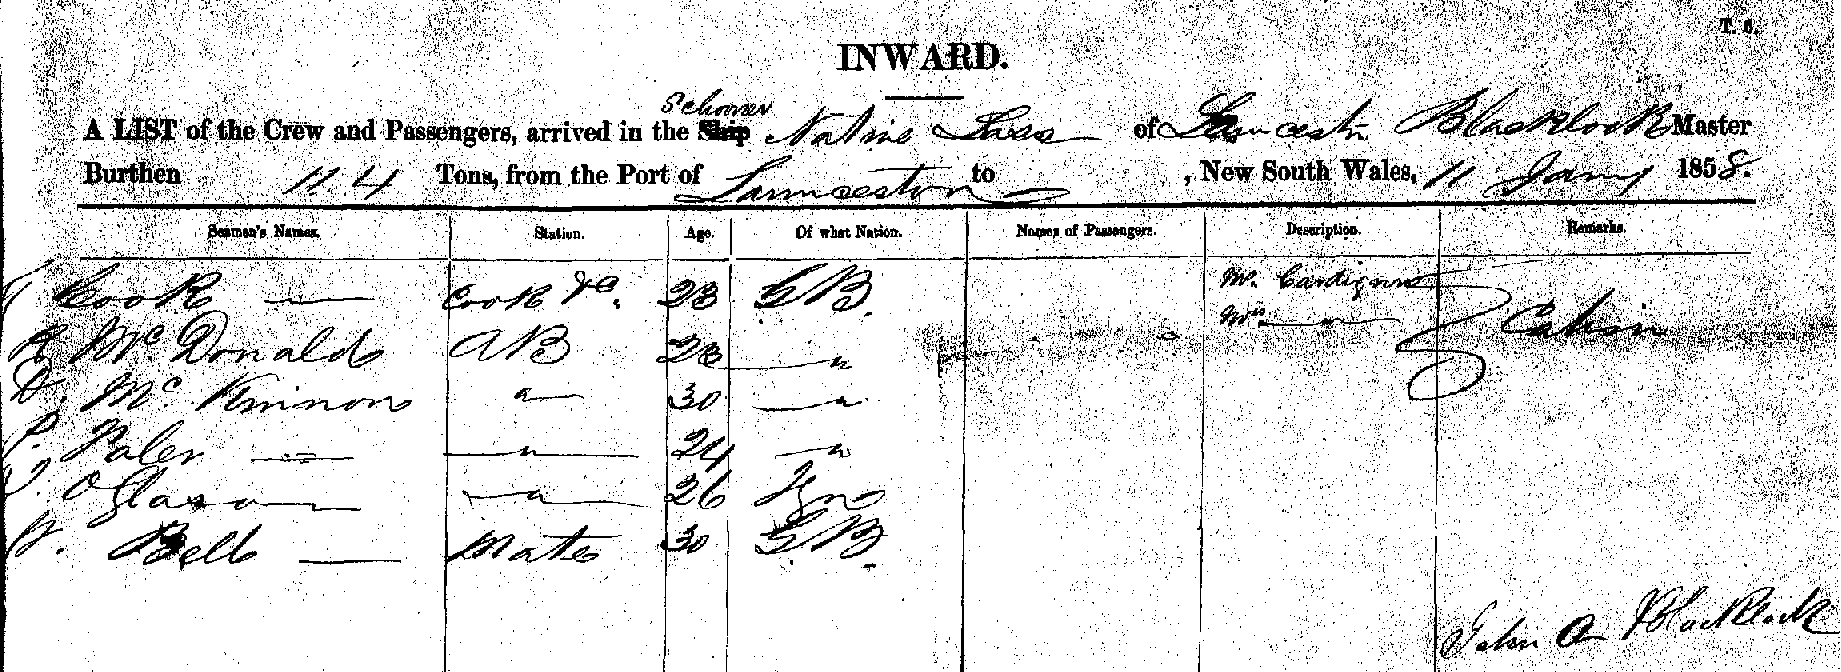 T. 6.
INWARD.
Schooner
A LIST of the Crew and Passengers, arrived in the Ship Native Lass of Launceston Blacklock Master
Burthen 114 Tons, from the Port of Launceston to , New South Wales, 11 Jany 1858.
Seamen's Names. Station. Age. Of what Nation. Names of Passengers. Description. Remarks.
Cook Cook &c. 28 GB. Mr. Cardignus
R McDonald AB 28 " Mrs " Cabin
D. Mc. Kinnon " 30 "
P. " 24 "
" 26
W. Bell Mate 30 GB.
John A Blacklock